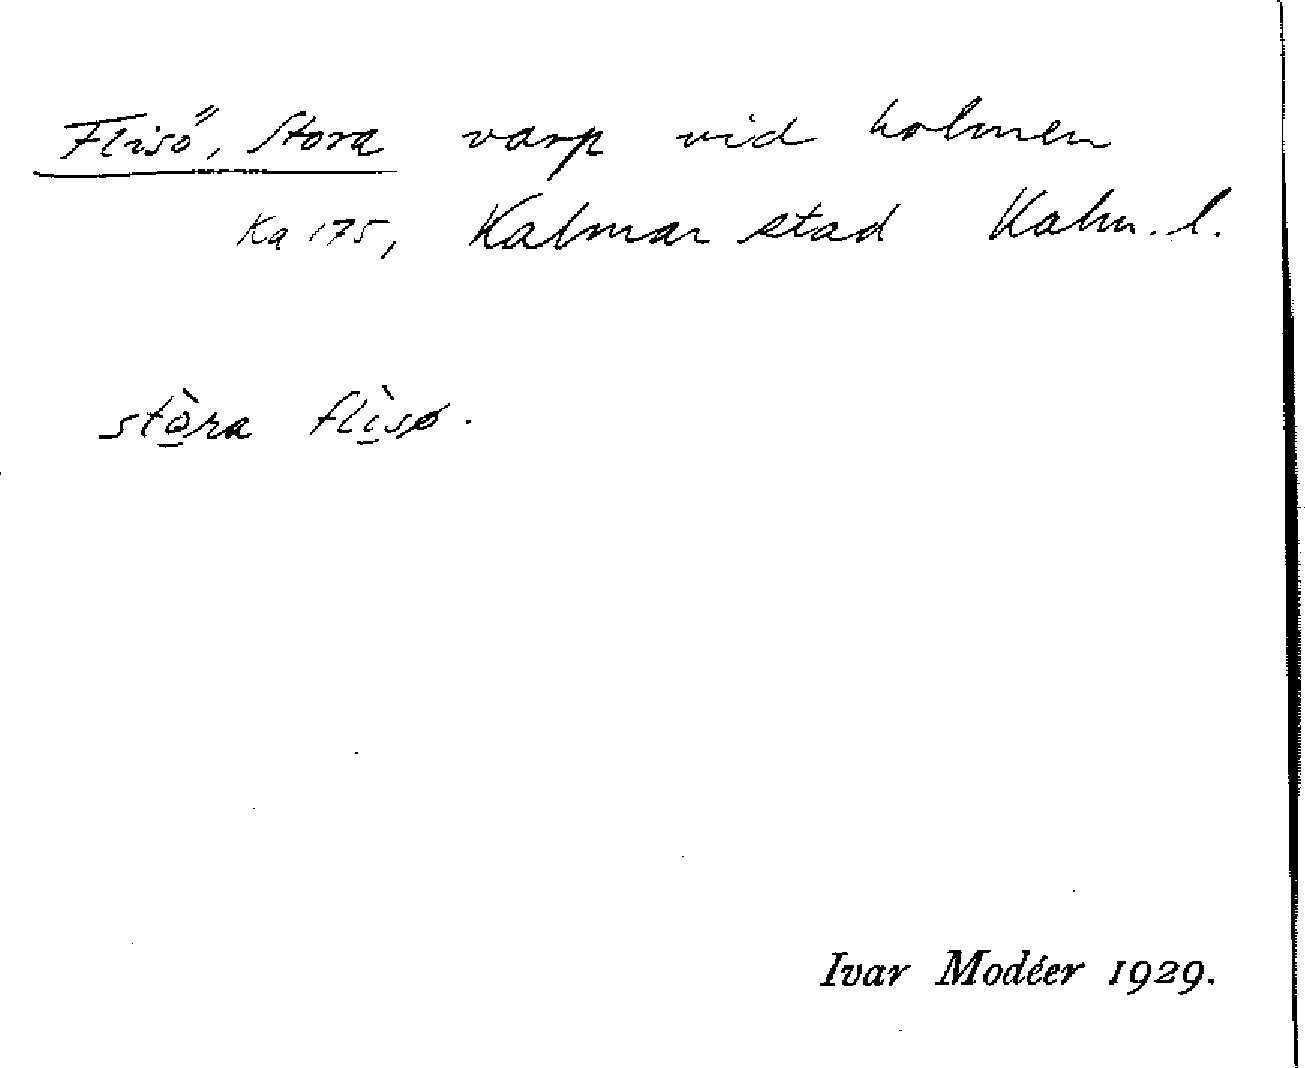 Flisö, Stora varp vid holmen
Ka 175, Kalmar stad Kalm. l.
stò̱ra flì̱sø.
Ivar Modéer 1929.